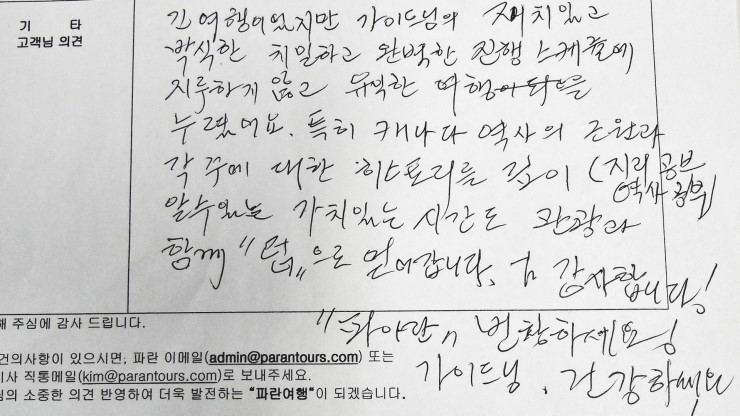 기 타
고객님 의견
긴 여행이었지만 가이드님의 재치있고
박식한 치밀하고 완벽한 진행 스케쥴에
지루하게 않고 유익한 여행을
누렸어요. 특히 캐나다 역사의 근원과
각 주에 대한 히스토리를 깊이 (지리 공부
역사 공부)
알수있는 가치있는 시간도 관광과
함께 "덤"으로 얻어갑니다. 감사합니다!
"파아란" 번창하세요!
가이드님, 건강하세요
해 주심에 감사 드립니다.
건의사항이 있으시면, 파란 이메일(admin@parantours.com) 또는
이사 직통메일(kim@parantours.com)로 보내주세요.
님의 소중한 의견 반영하여 더욱 발전하는 "파란여행"이 되겠습니다.